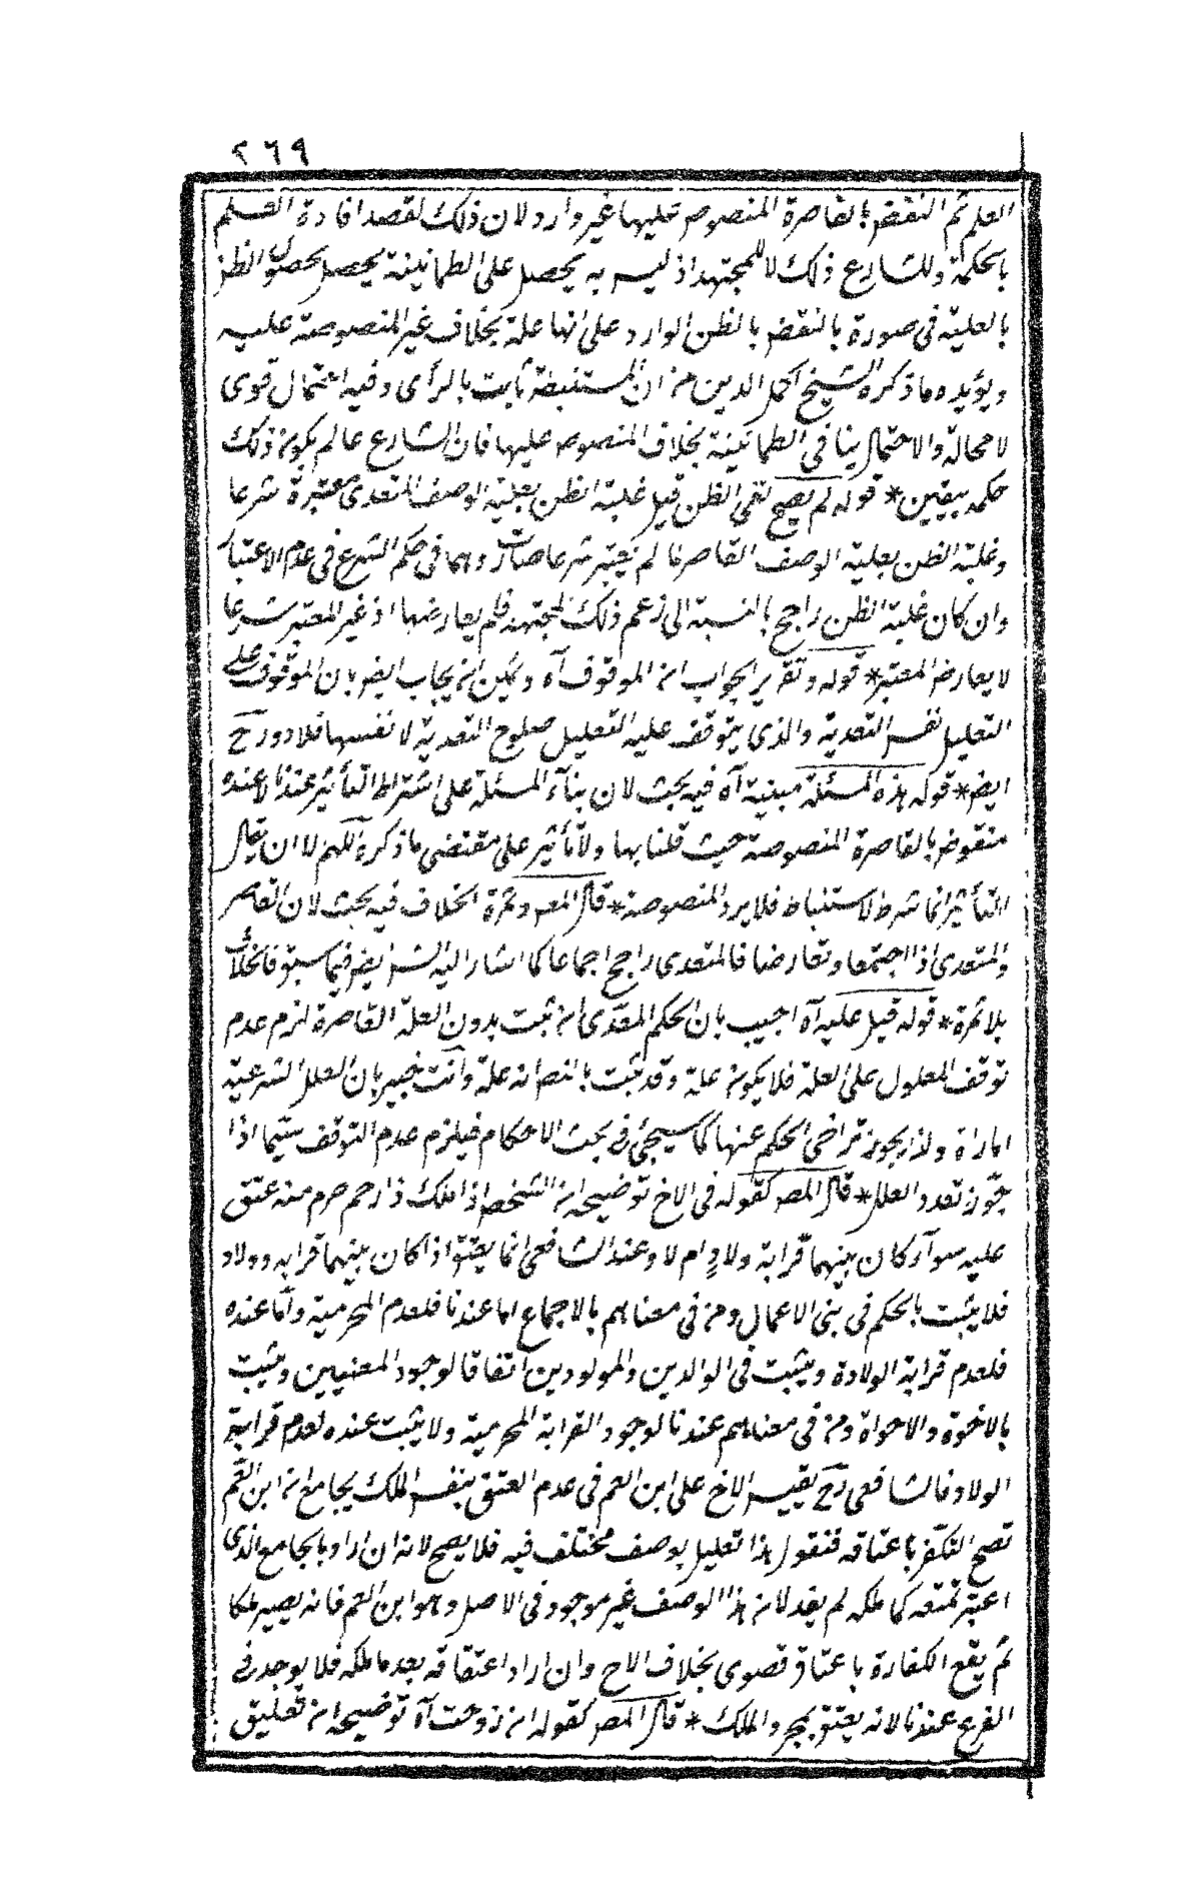 ٢٦٩
العلم ثم النقض بالقاصرة المنصوص عليها غير وارد لان ذلك لقصد افادة العلم
بالحكمة وللشارع ذلك لا للمجتهد اذ ليس به يحصل على الطمانينة يحصل بحصول الظن
بالعلية فى صورة بالنقض بالظن الوارد على انها علة بخلاف غير المنصوصة عليه
ويؤيده ما ذكره الشيخ اكمل الدين من ان المستنبطة ثابت بالرأى وفيه احتمال قوى
لا محالة والاحتمال ينافى الطمانينة بخلاف المنصوص عليها فان الشارع عالم بكون ذلك
حكمه بيقين * قوله لم يصح نفى الظن قيل غلبة الظن بعلية الوصف المتعدى معتبرة شرعا
وغلبة الظن بعلية الوصف القاصر لما لم يعتبر شرعا صارت وهما فى حكم الشرع فى عدم الاعتبار
وان كان غلبة الظن راجح بالنسبة الى زعم ذلك المجتهد فلم يعارضها اذ غير المعتبر شرعا
لا يعارض المعتبر * قوله وتقرير الجواب ان الموقوف آه ويمكن ان يجاب ايض بان الموقوف على
التعليل نفس التعدية والذى يتوقف عليه التعليل صلوح التعدية لا نفسها فلا دور ح
ايض * قوله هذه المسئلة مبنية آه فيه بحث لان بناء المسئلة على اشتراط التأثير عندنا لا عنده
منقوض بالقاصرة المنصوصة حيث قلنا بها ولا تأثير على مقتضى ما ذكره اللهم الا ان يقال
التأثير انما شرط لاستنباط فلا يرد المنصوصة * قال المص وثمرة الخلاف فيه بحث لان القاصر
والمتعدى اذا اجتمعا وتعارضا فالمتعدى راجح اجماعا كما اشار اليه الشريف فيما سبق فالخلاف
بلا ثمرة * قوله قيل عليه آه اجيب بان الحكم المعدى ان ثبت بدون العلة القاصرة لزم عدم
توقف المعلول على العلة فلا يكون علة وقد ثبت بالنص انه علة وانت خبير بان العلل الشرعية
اماراة ولذا يجوز تراخى الحكم عنها كما سيجئ فى بحث الاحكام فيلزم عدم التوقف سيما اذا
جوز تعدد العلل * قال المص كقوله فى الاخ توضيحه ان الشخص اذا ملك ذا رحم محرم منه عتق
عليه سواء كان بينهما قرابة ولاد ام لا وعند الشافعى انما يعتق اذا كان بينهما قرابه وولاد
فلا يثبت بالحكم فى بنى الاعمال ومن فى معناهم بالاجماع اما عندنا فلعدم المحرمية واما عنده
فلعدم قرابة الولادة ويثبت فى الوالدين والمولودين اتفاقا لوجود المعنيين ويثبت
بالاخوة والاخواة ومن فى معناهم عندنا لوجود القرابة المحرمية ولا يثبت عنده لعدم قرابة
الولاد فالشافعى رح يقيس الاخ على ابن العم فى عدم العتق بنفس الملك بجامع ان ابن العم
تصح التكفر باعتاقه فنقول هذا تعليل بوصف مختلف فيه فلا يصح لانه ان اراد بالجامع الذى
اعتبر تمتعه كما ملكه لم يفد لان هذا الوصف غير موجود فى الاصل وهو ابن العم فانه يصير ملكا
ثم يقع الكفارة باعتاق قصوى بخلاف الاخ وان اراد اعتقاقه بعد ما ملكه فلا يوجد فى
الفرع عندنا لانه يعتق بمجرد الملك * قال المص كقوله ان زوجت آه توضيحه ان تعليق